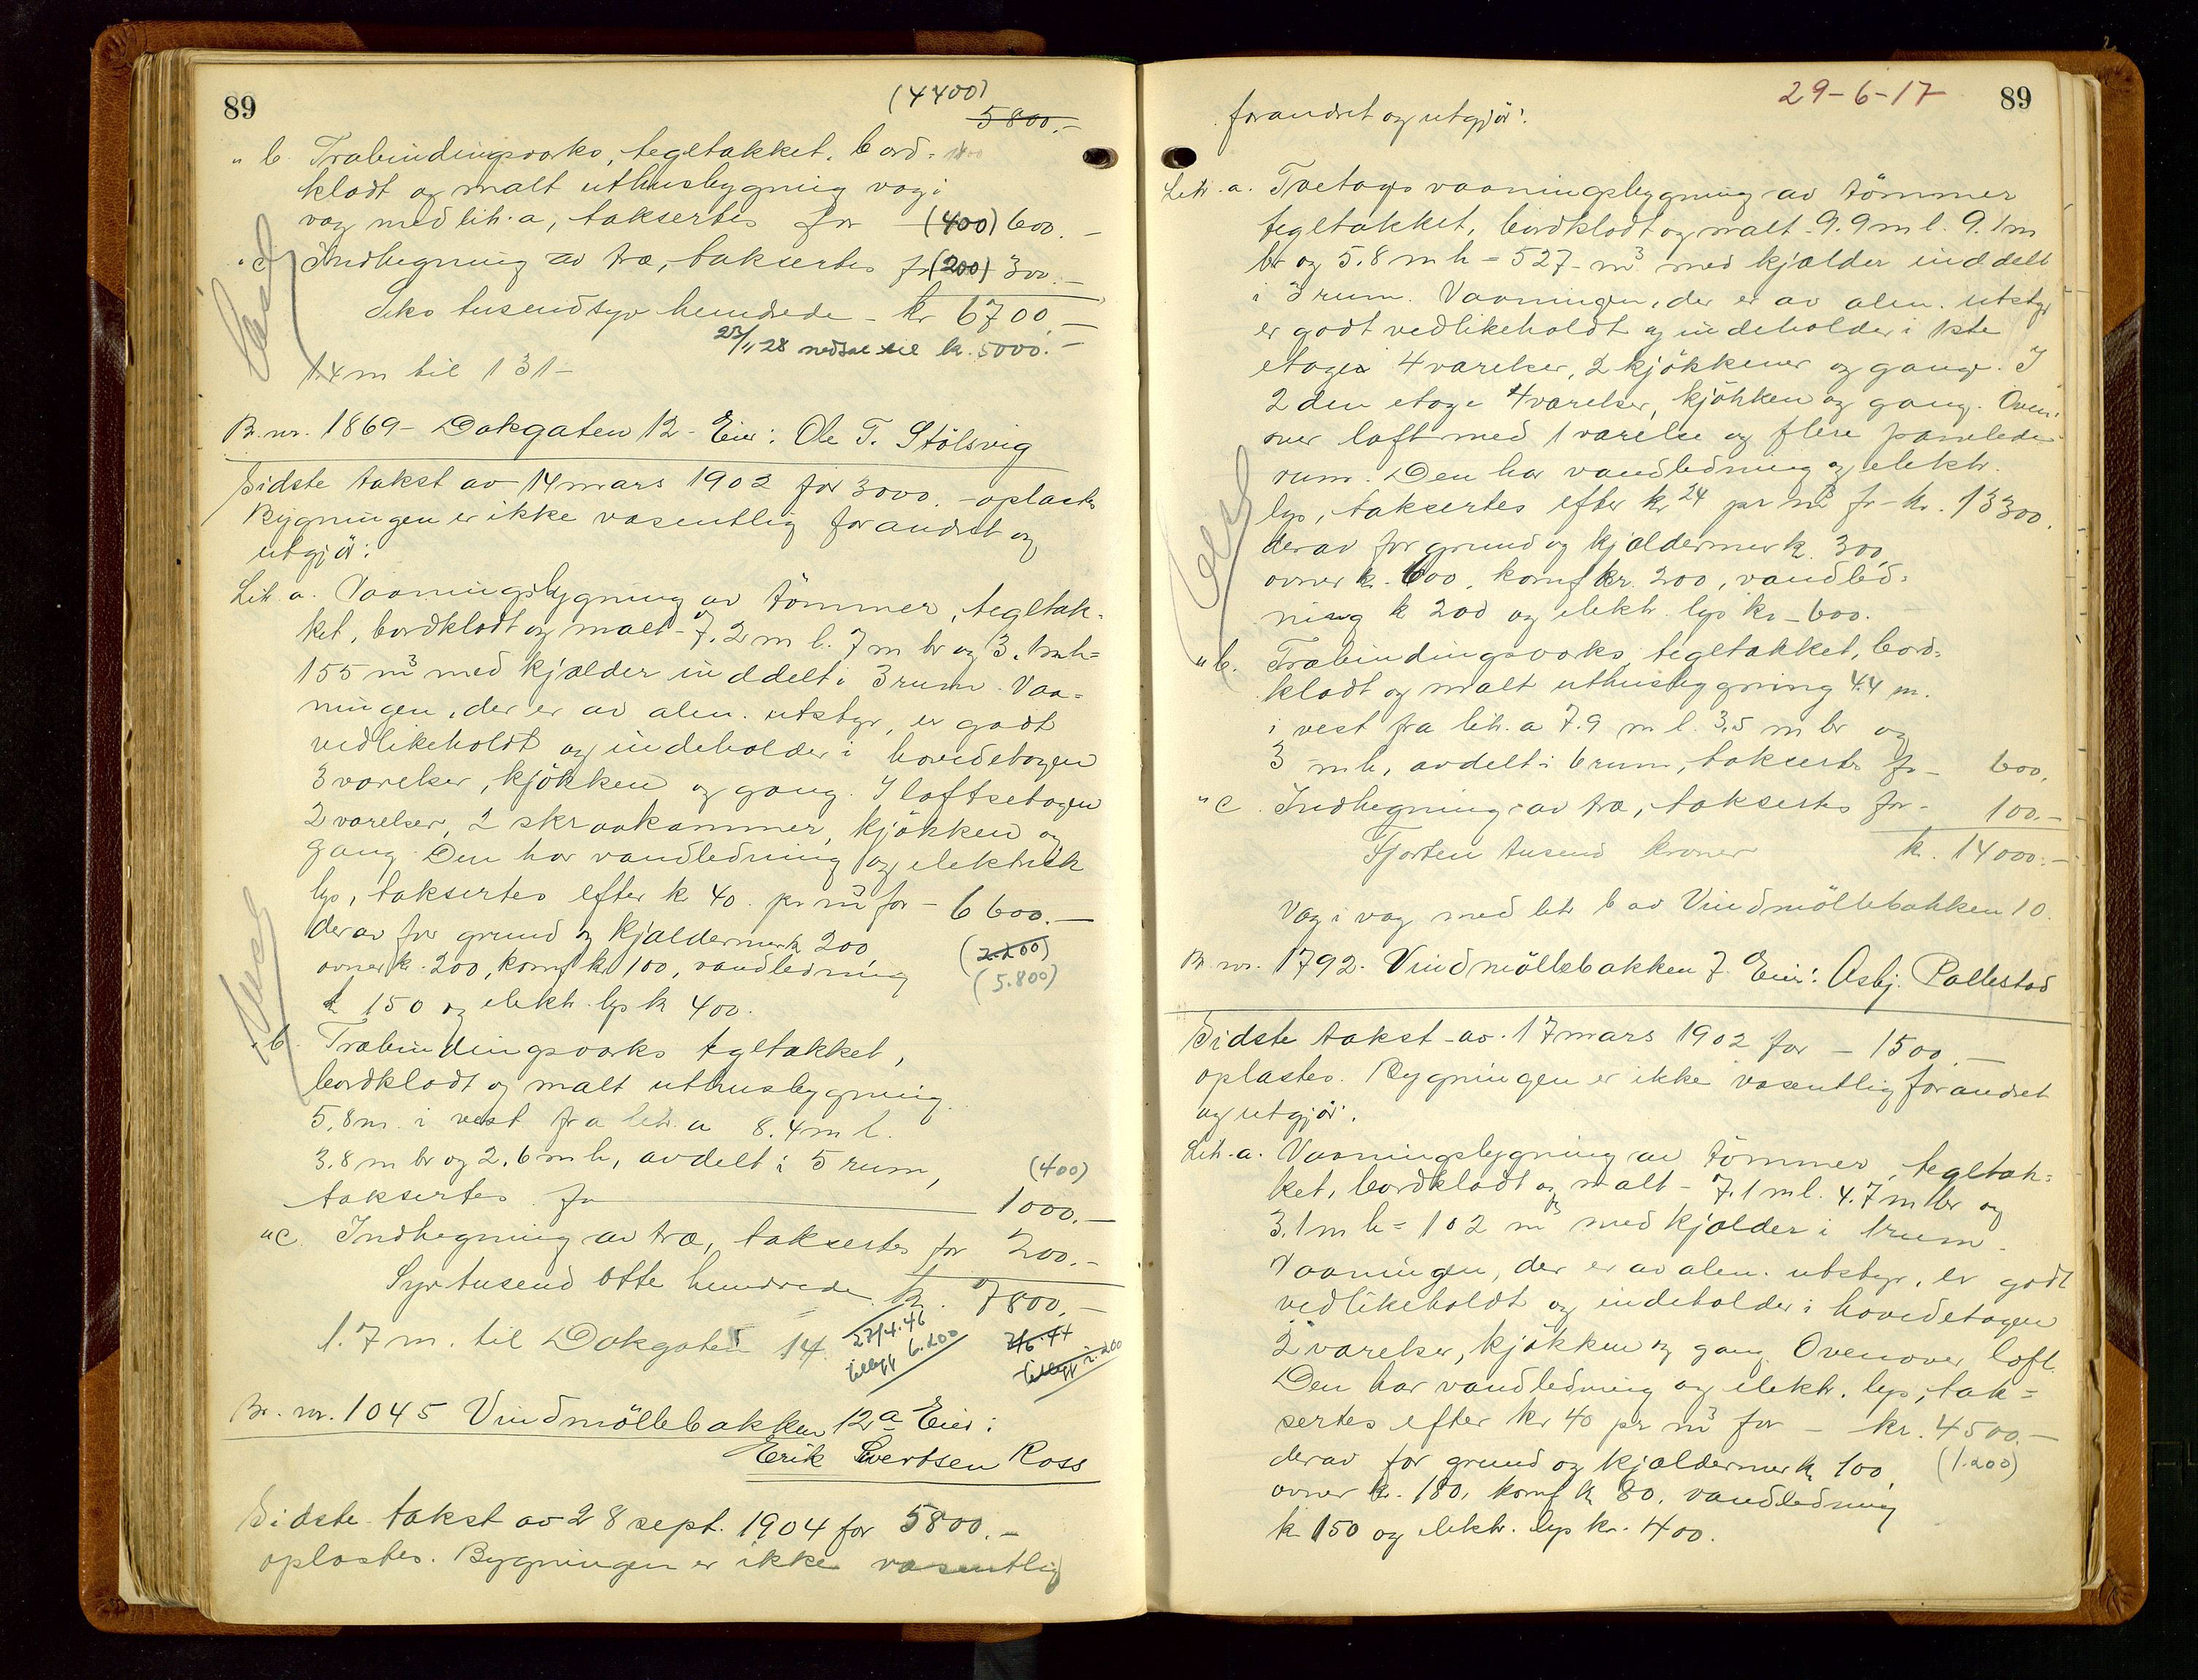 89
(4400)
5800.-
" b. Træbindingsværks, tegltækket, bord-
klædt og malt uthusbygning væg i
væg med litr. a, taksertes for (400) 600.-
" c Indhegning av træ, taksertes for (200) 300.-
Seks tusend syv hundrede - kr 6700.-
23/11 28 nedsat til kr. 5000.-
1.4 m til 131-
Br. nr. 1869 - Dokgaten 12 - Eier: Ole T. Stölsvig
Sidste takst av 14 mars 1902 for 3000.- oplæstes
Bygningen er ikke væsentlig forandret og
utgjør:
Litr. a. Vaaningsbygning av tömmer, tegltæk-
ket, bordklædt og malt - 7.2 m l. 7 m br og 3.1 m h =
155 m³ med kjælder inddelt i 3 rum. Vaa-
ningen, der er av alm. utstyr, er godt
vedlikeholdt og indeholder i hovedetagen
3 værelser, kjökken og gang. I loftsetagen
2 værelser, 2 skraakammer, kjökken og
gang. Den har vandledning og elektrisk
lys, taksertes efter kr 40 pr m³ for - 6600.-
derav for grund og kjældermur k 200 (2.200)
ovner kr. 200, komf kr 100, vandledning (5.800)
k 150 og elektr. lys k 400.
" b. Træbindingsværks tegltækket,
bordklædt og malt uthusbygning
5.8 m i vest fra litr. a 8.4 m l.
3.8 m br og 2.6 m h, avdelt i 5 rum, (400)
taksertes for 1000.-
" c Indhegning av træ, taksertes for 200.-
Syv tusend otte hundrede kr. 7800.-
1.7 m. til Dokgaten 14 27/4.46 7/6.44
tillegg 6.200 tillegg 2.200
Br. nr. 1045 Vindmöllebakken 12a Eier:
Erik Svertsen Ross
Sidste takst av 28 sept. 1904 for 5800.-
oplæstes. Bygningen er ikke væsentlig
29-6-17 89
forandret og utgjör:
Litr. a. Toetages vaaningsbygning av tömmer
tegltækket, bordklædt og malt - 9.9 m l. 9.1 m
br og 5.8 m h = 527 m³ med kjælder inddelt
i 3 rum. Vaaningen, der er av alm. utstyr
er godt vedlikeholdt og indeholder i 1ste
etage 4 værelser, 2 kjökkener og gang. I
2den etage 4 værelser, kjökken og gang. Oven-
over loft med 1 værelse og flere panelede
rum. Den har vandledning og elektr.
lys, taksertes efter kr 24 pr m³ for - kr. 13300.
derav for grund og kjældermur k. 300,
ovner k. 600, komf kr. 200, vandled-
ning k 200 og elektr. lys kr - 600.
" b. Træbindingsværks tegltækket, bord-
klædt og malt uthusbygning 4.4 m.
i vest fra litr. a 7.9 m l. 3.5 m br og
3 m h, avdelt i 6 rum, taksertes for - 600.
" c. Indhegning av træ, taksertes for - 100.-
Fjorten tusend kroner k. 14000.-
Væg i væg med litr b av Vindmöllebakken 10.
Br nr. 1792. Vindmöllebakken 7. Eier: Asbj. Pallestad
Sidste takst av 17 mars 1902 for - 1500.-
oplæstes. Bygningen er ikke væsentlig forandret
og utgjör:
Litr. a. Vaaningsbygning av tömmer, tegltæk-
ket, bordklædt og malt - 7.1 m l. 4.7 m br og
3.1 m h = 102 m³ med kjælder i 1 rum.
Vaaningen, der er av alm. utstyr, er godt
vedlikeholdt og indeholder i hovedetagen
2 værelser, kjökken og gang. Ovenover loft.
Den har vandledning og elektr. lys, tak-
sertes efter kr 40 pr m³ for - kr. 4500.-
derav for grund og kjældermur k 100, (1.200)
ovner k. 180, komf k 80, vandledning
k 150 og elektr. lys kr. 400.